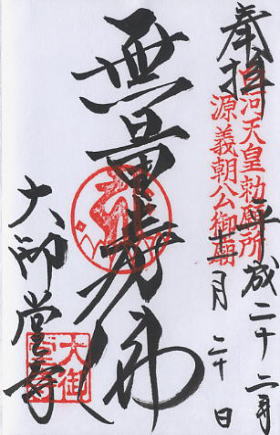 奉拝
白河天皇勅願所
源義朝公御廟
平成二十二年
月二十日
無量壽佛
大御堂寺
大御堂寺